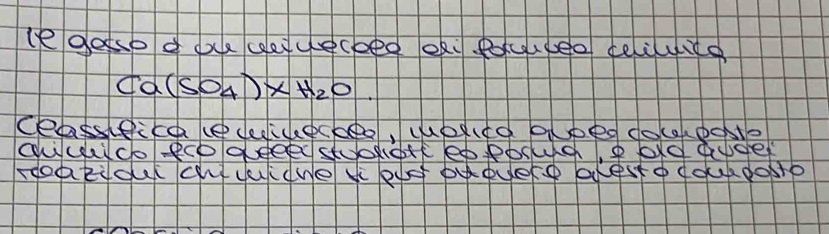 Il gesso è un minerale di formula chimica
Ca(SO4)x H2O.
Classifica il minerale, indica quale composto
chimico fra quelli studiati lo forma, e da quali
reazioni chimiche si può ottenere questo composto